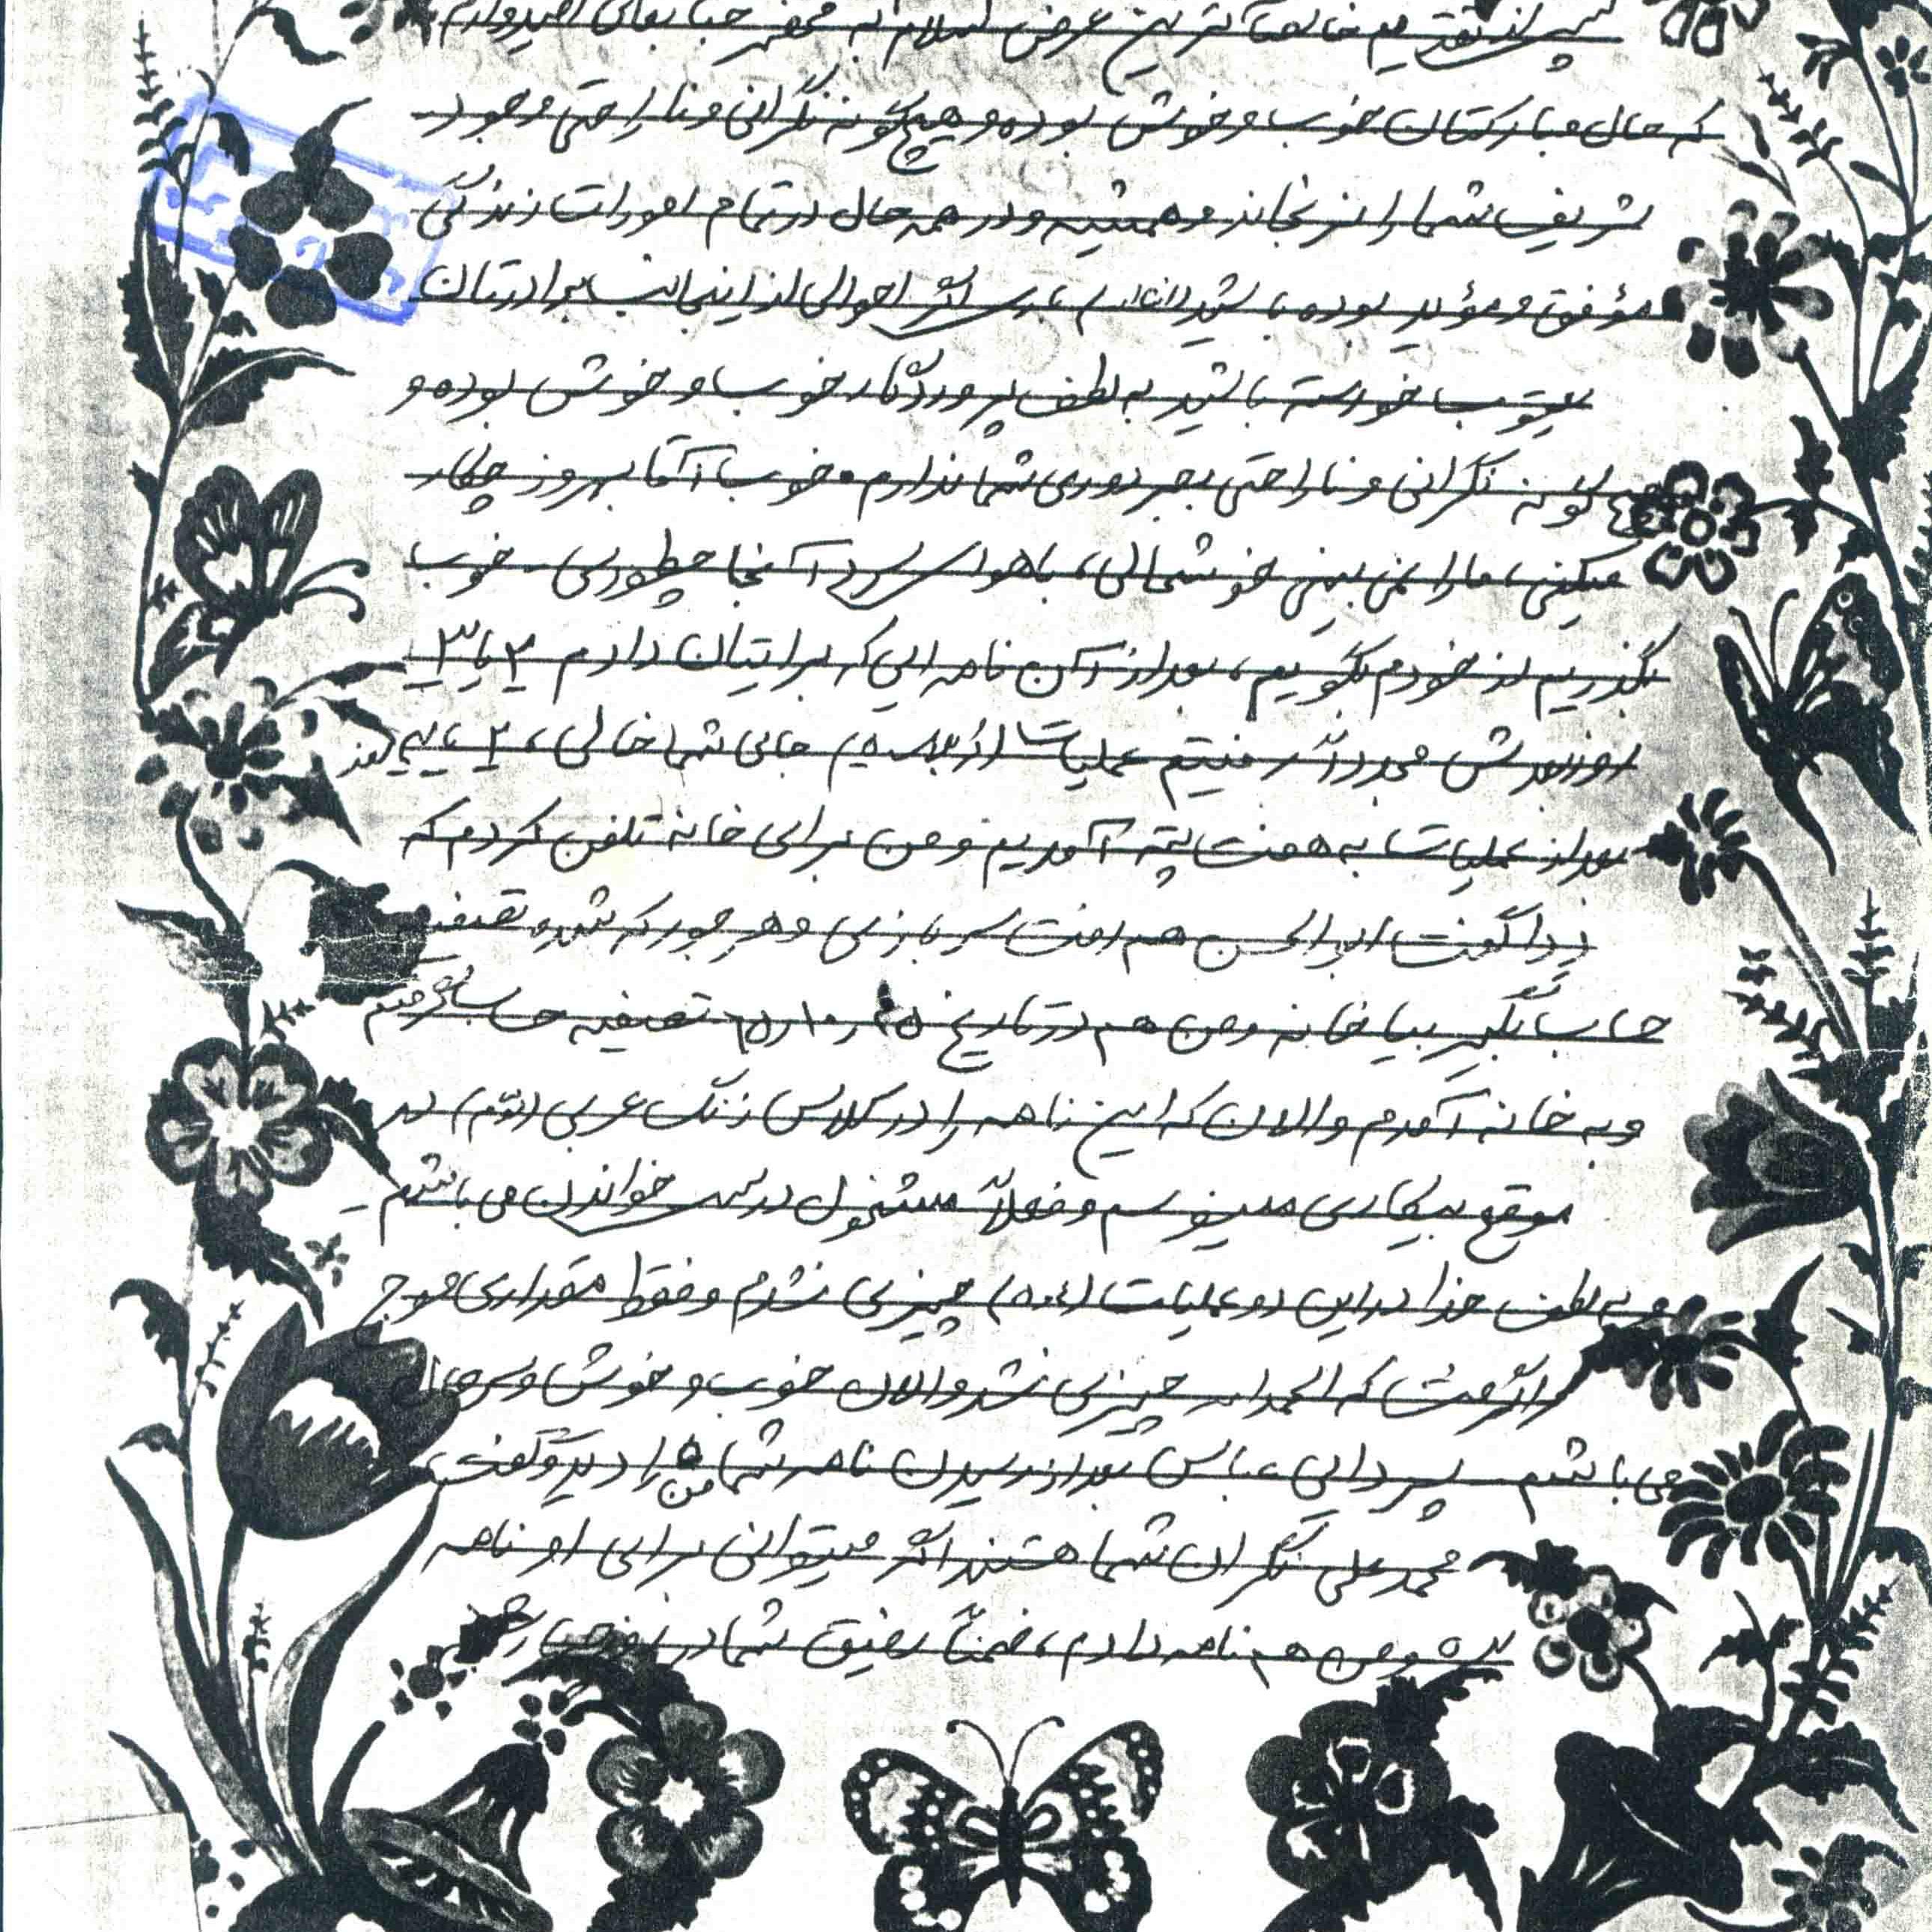 پس از تقدیم خالصانه‌ترین عرض سلام به محضر جنابعالی امیدوارم
که حال مبارکتان خوب و خوش بوده و هیچگونه نگرانی و ناراحتی وجود
شریف شما را نرنجاند و همیشه و در همه حال در تمام امورات زندگی
مؤفق و مؤید بوده باشید باری اگر احوالی از اینجانب برادرتان
یعقوب خواسته باشید به لطف پروردگار خوب و خوش بوده و
هیچ گونه نگرانی و ناراحتی بجز دوری شما ندارم خوب آقا بهروز چکار
میکنی، ما را نمی بینی خوشحالی، با هوای سرد آنجا چطوری. خوب
بگذریم از خودم بگویم، بعد از آن نامه ایی که براتیان دادم ۲ یا ۳
روز بعدش مجدداً رفتیم عملیات جای شما خالی، ۲ روز
بعد از عملیات به هفت تپه آمدیم و من برای خانه تلفن کردم که
گفت ابوالحسن هم رفت سربازی و هر جور که شده تصفیه
حساب بگیر بیا خانه و من هم در تاریخ تصفیه حساب گرفتم
و به خانه آمدم و الان که این نامه را در کلاس زنگ عربی (دوم) در
موقع بیکاری مینویسم و فعلاً مشغول درس خواندن می باشم
و به لطف خدا در این دو عملیات (۴ و ۵) چیزی نشدم و فقط مقداری موج
گرفت که الحمدالله چیزی نشد و الان خوب و خوش
می باشم پسر دائی عباس بعد از رسیدن نامه شما من را دید و گفت
محمد علی نگران شما هستند اگر میتوانی برای او نامه
بده و من هم نامه دادم، ضمناً رفیق شما در